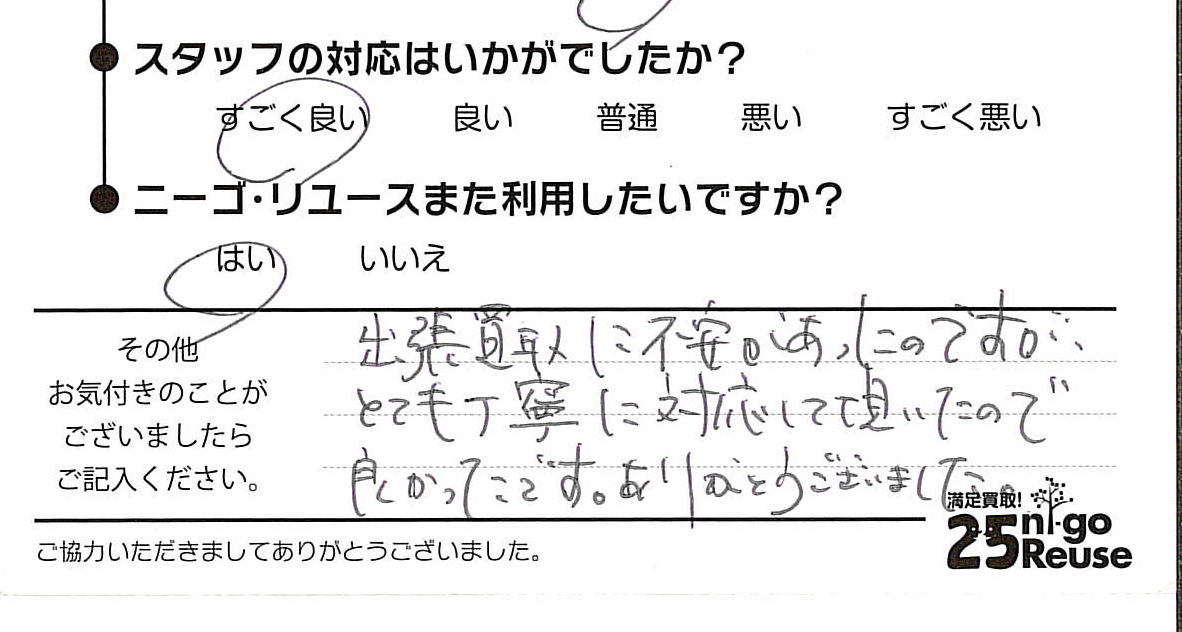 スタッフの対応はいかがでしたか？
すごく良い 良い 普通 悪い すごく悪い
ニーゴ・リユースまた利用したいですか？
はい いいえ
その他
お気付きのことが
ございましたら
ご記入ください。
出張買取に不安があったのですが、
とても丁寧に対応して頂いたので
良かったです。ありがとうございました。
満足買取!
25 ni-go
Reuse
ご協力いただきましてありがとうございました。